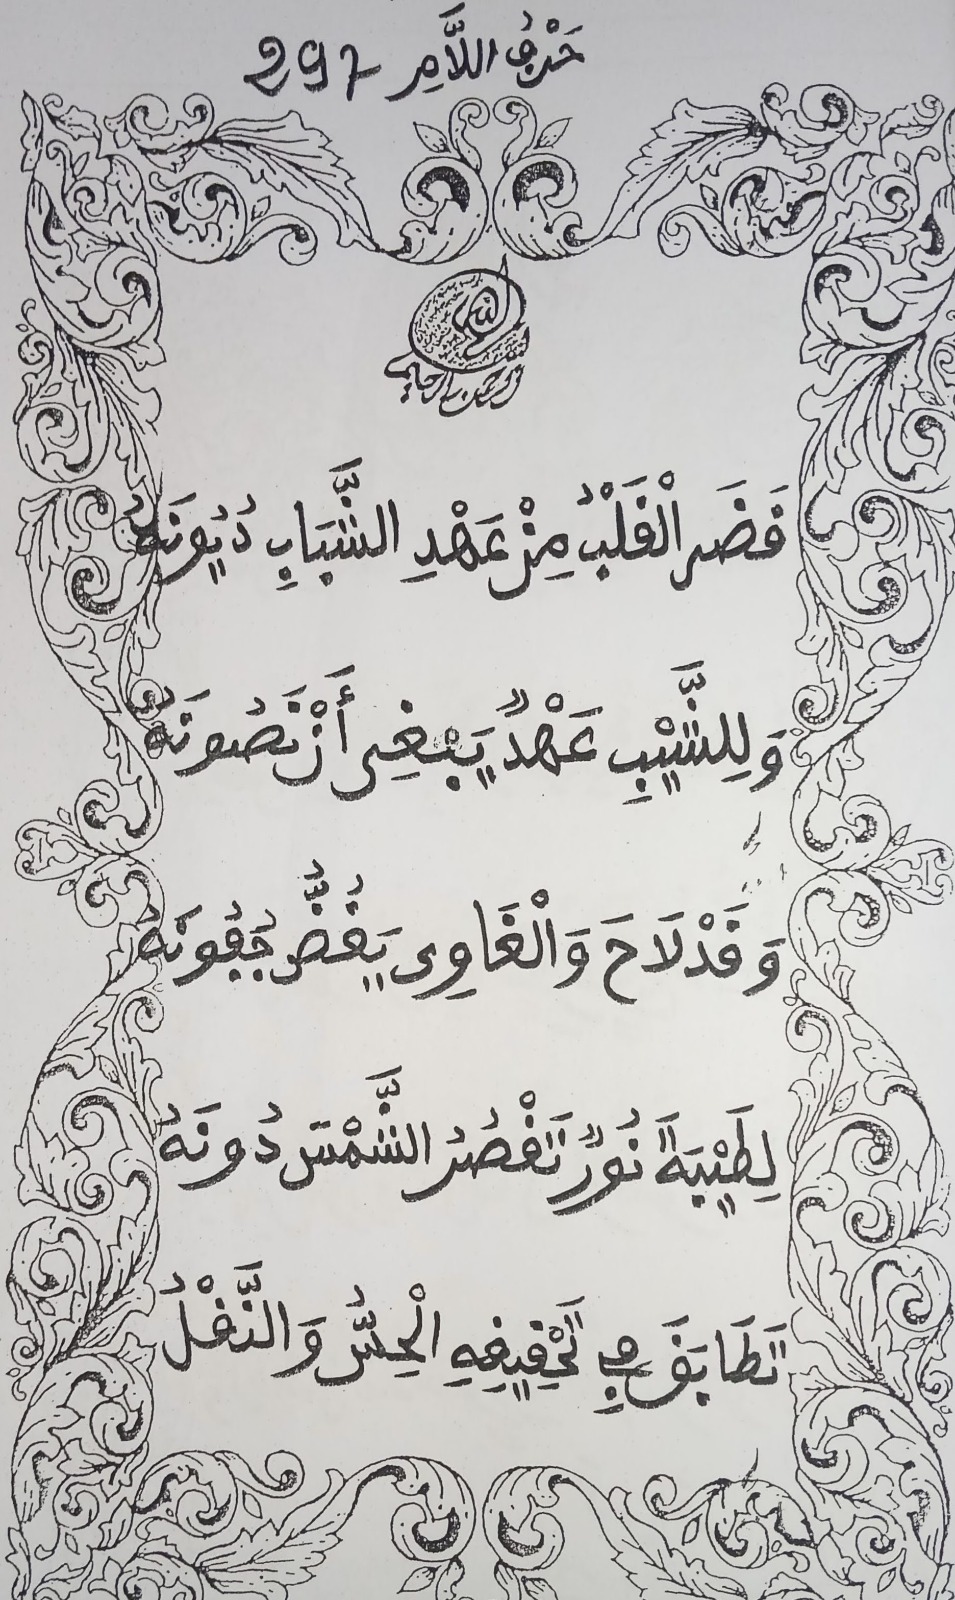 حَرْفُ اللَّامِ 297
قَضَى الْقَلْبُ مِنْ عَهْدِ الشَّبَابِ دُيُونَهُ
وَلِلشَّيْبِ عَهْدٌ يَبْتَغِي أَنْ تَصُونَهُ
وَقَدْ لَاحَ وَالْغَاوِي يَغُضُّ جُفُونَهُ
لِطَيْبَةَ نُورٌ تَقْصُرُ الشَّمْسُ دُونَهُ
تَطَابَقَ فِي تَحْقِيقِهِ الْحِسُّ وَالنَّقْلُ